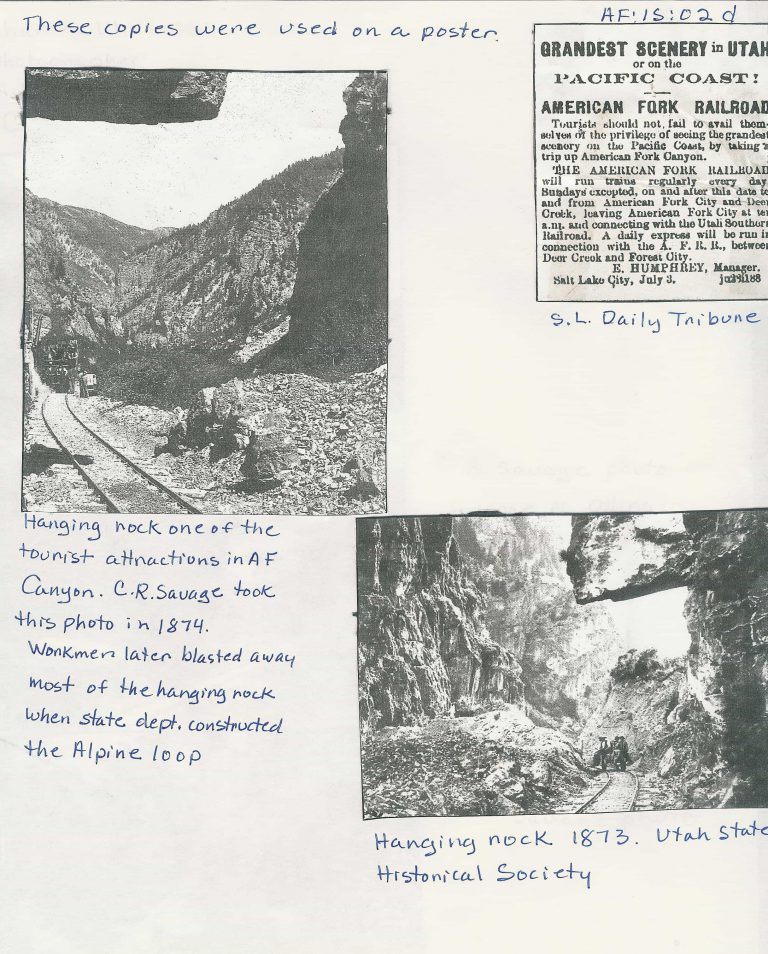 These copies were used on a poster.
AF:15:02 d
GRANDEST SCENERY in UTAH
or on the
PACIFIC COAST!
AMERICAN FORK RAILROAD
Tourists should not fail to avail them-
selves of the privilege of seeing the grandest
scenery on the Pacific Coast, by taking a
trip up American Fork Canyon.
THE AMERICAN FORK RAILROAD
will run trains regularly every day,
Sundays excepted, on and after this date to
and from American Fork City and Deer
Creek, leaving American Fork City at ten
a.m. and connecting with the Utah Southern
Railroad. A daily express will be run in
connection with the A. F. R. R., between
Deer Creek and Forest City.
E. HUMPHREY, Manager.
Salt Lake City, July 3.
S.L. Daily Tribune
Hanging rock one of the
tourist attractions in AF
Canyon. C.R. Savage took
this photo in 1874.
Workmen later blasted away
most of the hanging rock
when state dept. constructed
the Alpine loop
Hanging rock 1873. Utah State
Historical Society